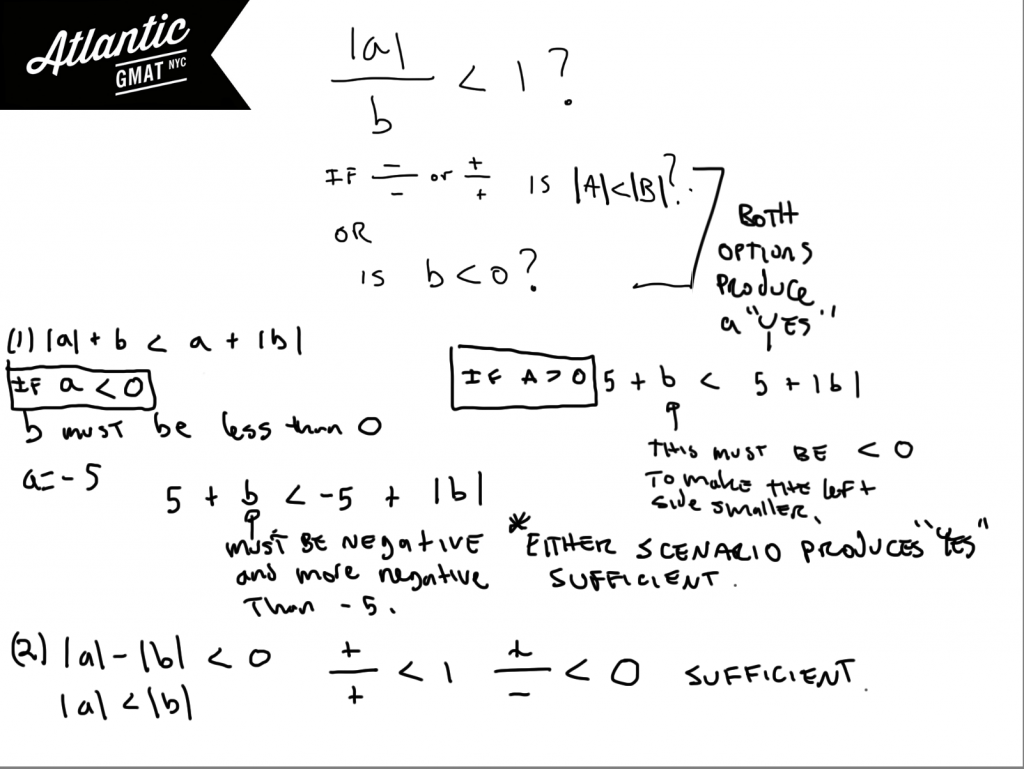 Atlantic
GMAT NYC
|a|
/ b < 1 ?
IF - / - or + / + IS |A|<|B|?
OR
IS b < 0 ?
BOTH
OPTIONS
PRODUCE
a "YES"
(1) |a| + b < a + |b|
IF a < 0
b must be less than 0
a = -5
5 + b < -5 + |b|
MUST BE NEGATIVE
and more negative
Than -5.
IF A > 0 5 + b < 5 + |b|
THIS MUST BE < 0
To make THE left
side smaller.
* EITHER SCENARIO PRODUCES "YES"
SUFFICIENT.
(2) |a| - |b| < 0 + / + < 1 + / - < 0 SUFFICIENT.
|a| < |b|